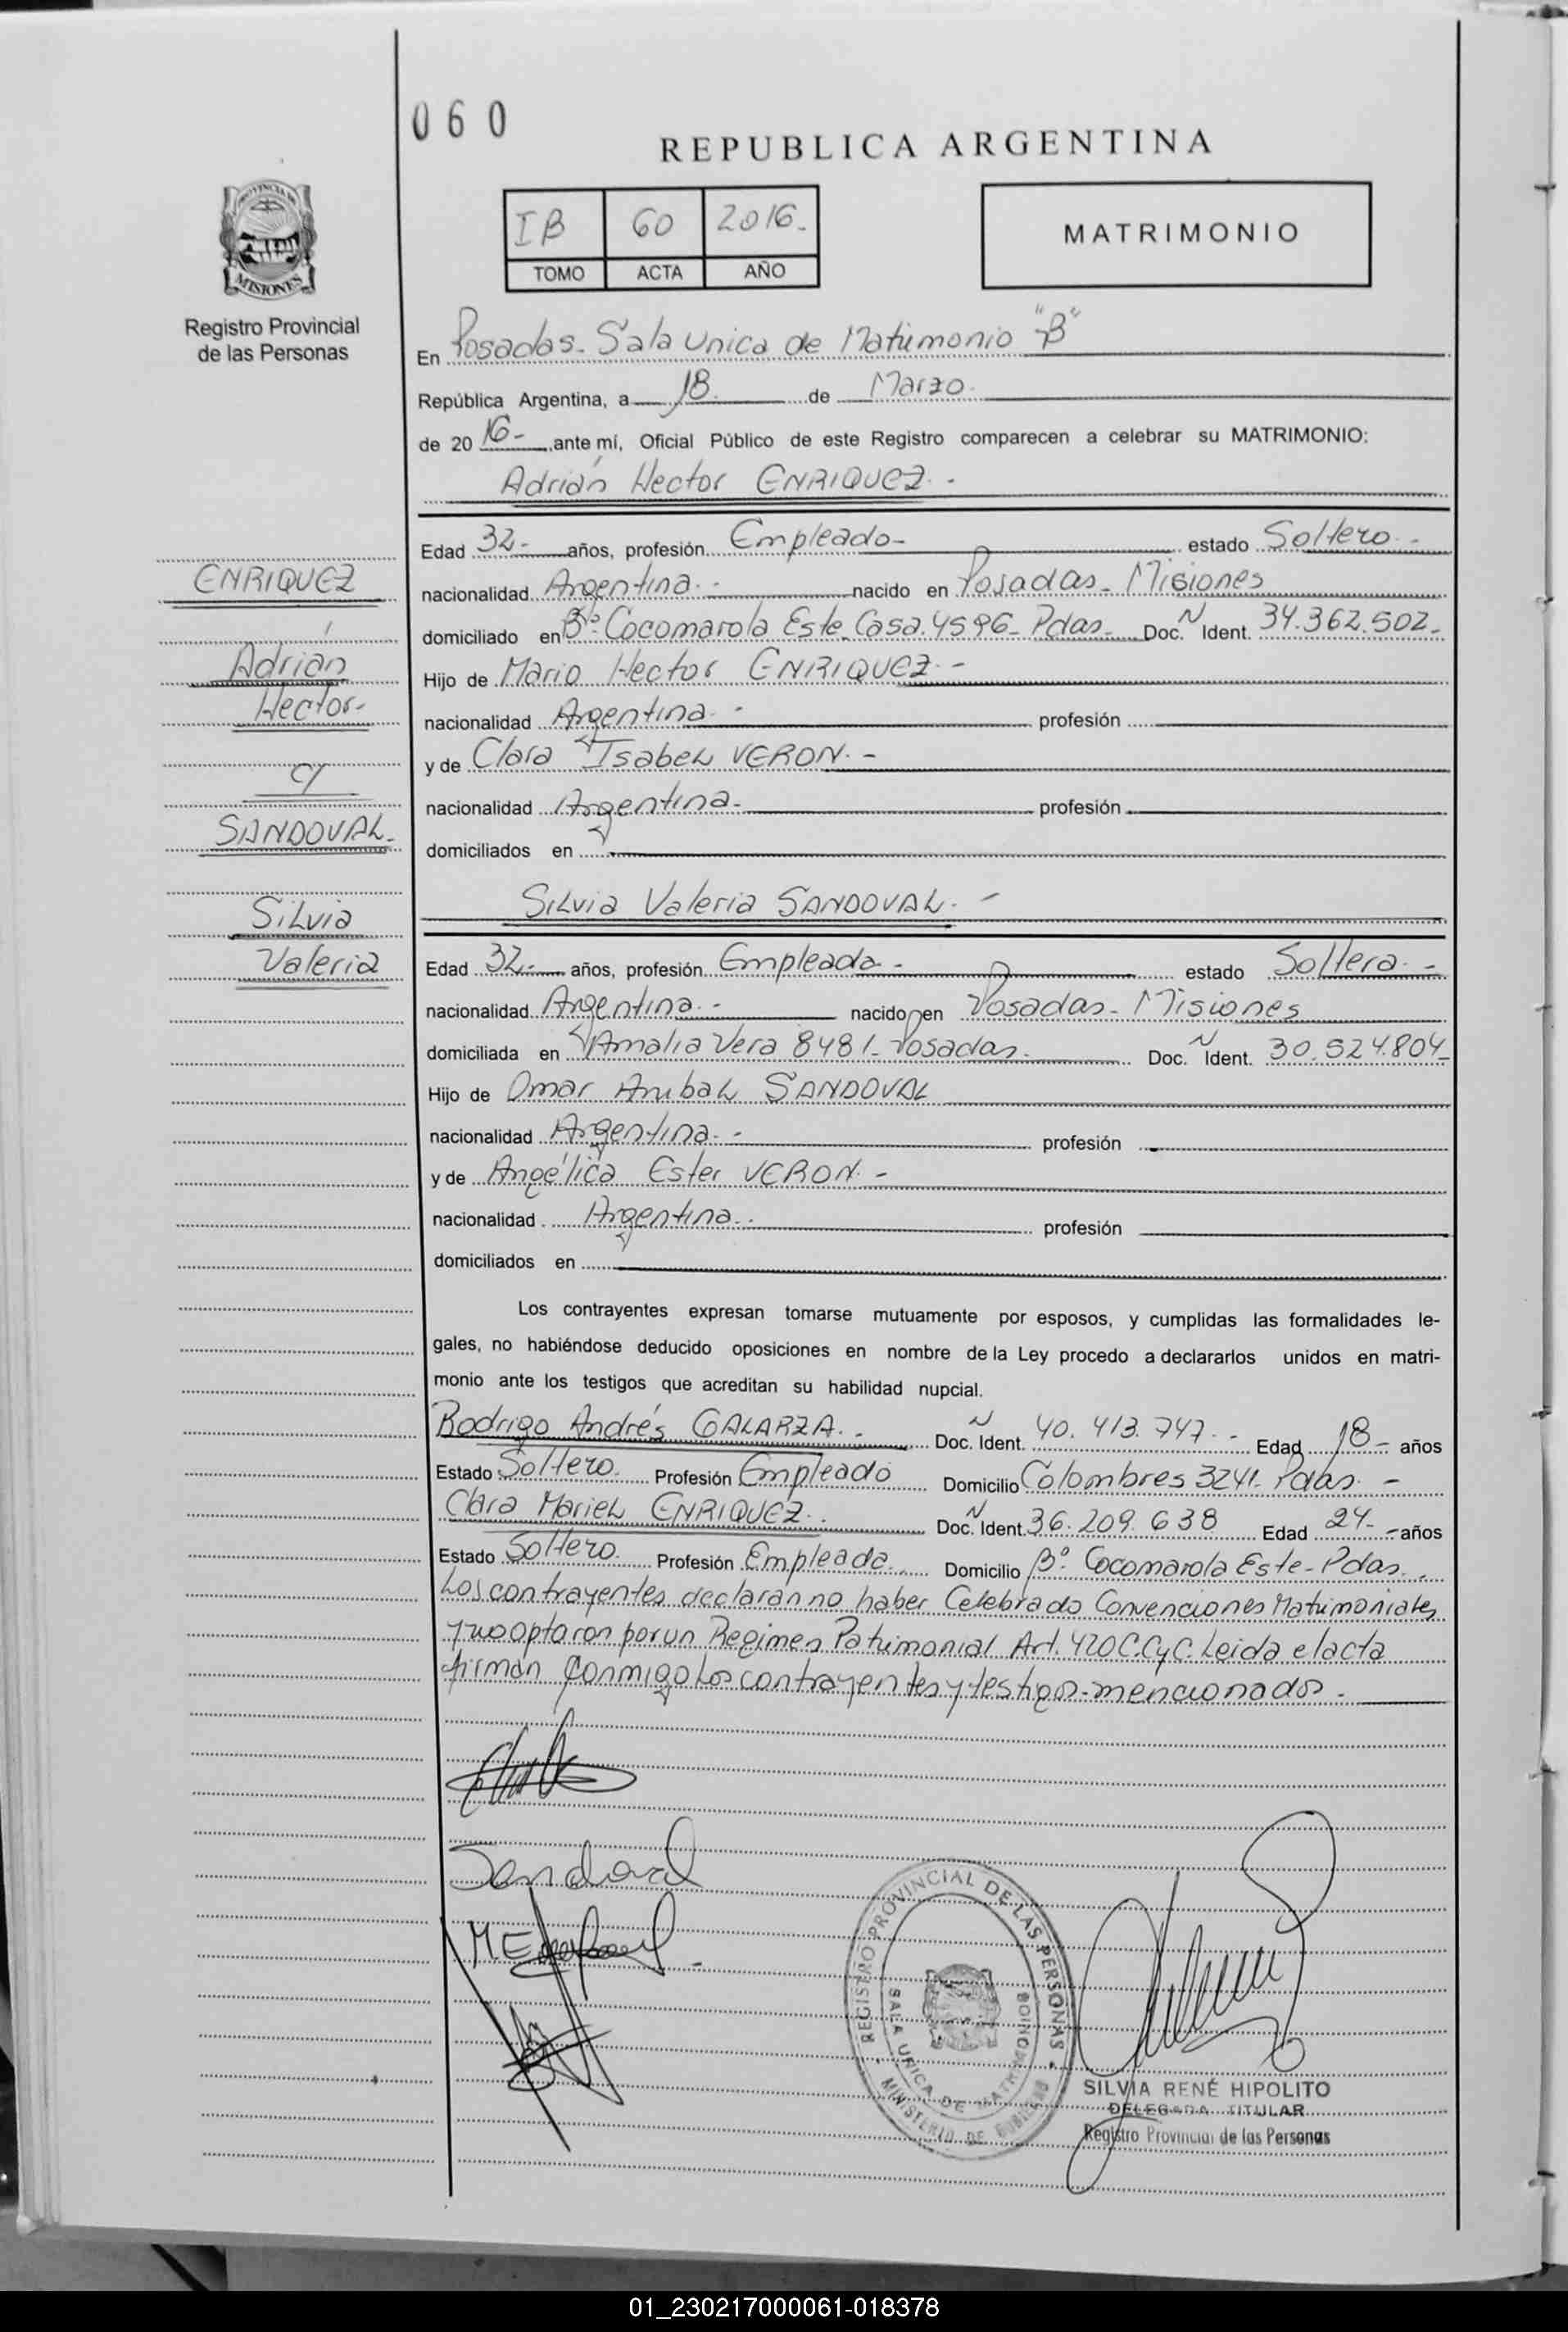 060
REPUBLICA ARGENTINA
PROVINCIA DE
MISIONES
Registro Provincial
de las Personas
IB 60 2016.-
TOMO ACTA AÑO
MATRIMONIO
En Posadas- Sala Unica de Matrimonio "B"
República Argentina, a 18 de Marzo.
de 2016- ,ante mí, Oficial Público de este Registro comparecen a celebrar su MATRIMONIO:
Adrián Hector ENRIQUEZ.-
ENRIQUEZ
Adrián
Hector-
c/
SANDOVAL-
Silvia
Valeria
Edad 32- años, profesión Empleado- estado Soltero.-
nacionalidad Argentina.- nacido en Posadas- Misiones
domiciliado en Bº Cocomarola Este Casa 4596- Pdas- Doc. N Ident. 34.362.502.-
Hijo de Mario Hector ENRIQUEZ.-
nacionalidad Argentina.- profesión
y de Clara Isabel VERON.-
nacionalidad Argentina- profesión
domiciliados en
Silvia Valeria SANDOVAL.-
Edad 32.- años, profesión Empleada- estado Soltera.-
nacionalidad Argentina.- nacido en Posadas- Misiones
domiciliada en Amalia Vera 8481- Posadas. Doc. N Ident. 30.524.804-
Hijo de Omar Anibal SANDOVAL
nacionalidad Argentina.- profesión
y de Angélica Ester VERON.-
nacionalidad Argentina.. profesión
domiciliados en
Los contrayentes expresan tomarse mutuamente por esposos, y cumplidas las formalidades le-
gales, no habiéndose deducido oposiciones en nombre de la Ley procedo a declararlos unidos en matri-
monio ante los testigos que acreditan su habilidad nupcial.
Rodrigo Andrés GALARZA.- Doc. N Ident. 40.413.747.- Edad 18- años
Estado Soltero. Profesión Empleado Domicilio Colombres 3241- Pdas.-
Clara Mariel ENRIQUEZ. Doc. N Ident. 36.209.638 Edad 24- años
Estado Soltero. Profesión Empleada. Domicilio Bº Cocomarola Este- Pdas.
Los contrayentes declaran no haber Celebrado Convenciones Matrimoniales
y no optaron por un Regimen Patrimonial Art. 420 C.C y C. Leida el acta
firman conmigo Los contrayentes y testigos- mencionados.-
Sandoval
REGISTRO PROVINCIAL DE LAS PERSONAS
SALA UNICA DE MATRIMONIO
MINISTERIO DE GOBIERNO
SILVIA RENÉ HIPOLITO
DELEGADA TITULAR
Registro Provincial de las Personas
01_230217000061-018378